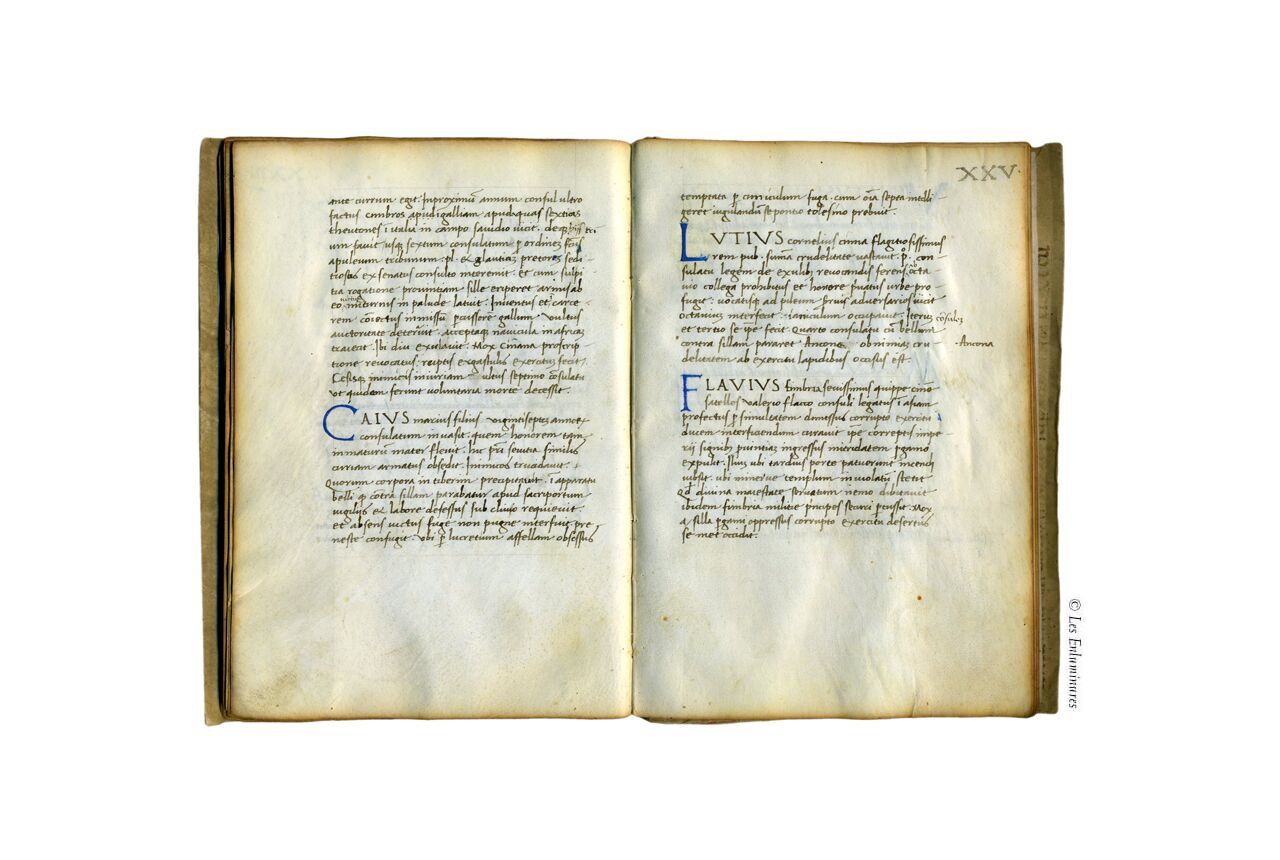 ante currum egit. Inproximũ annum consul ultro
factus cimbros apud galliam apud aquas sextias
theutones i italia in campo saudio uicit.
um fuit usqȝ sextum consulatum p ordinez
apuleum tribunum .pl. et glautiaz pretorez sedi
tiosos ex senatus consulto interemit. et cum sulpi
tia rogatione prouintiam sille eriperet armis ab
eo uictus minturnis in palude latuit. Inuentus et carce
rem coiectus inmissũ pcussorẽ gallum uultus
auctoritate deterruit. acceptaqȝ nauicula in africaz
traiecit. Ibi diu exulauit. Mox Cinana proscrip
tione reuocatus ruptis ergastulis exercitũ fecit.
Cesisqȝ inimicis iniuriam ultus septimo cõsulatu
ut quidem ferunt uoluntaria morte decessit.
CAIUS marius filius uigintiseptez annoꝝ
consulatum inuasit. quem honorem tam
inmaturũ mater fleuit. hic pri seuitia similis
curiam armatus obsedit. Inimicos trucidauit.
Quorum corpora in tiberim precipitauit. i apparatu
belli qȝ contra sillam parabatur apud sacriportum
uigiliis et labore defessus sub diuo requieuit.
et absens uictus fuge non pugne interfuit. pre
neste confugit. ubi p lucretium affellam obsessus
XXV
temptata p cuniculum fuga. cum oĩa septa intelli
geret iugulandũ se pontio telesino prebuit.
LUTIUS cornelius cinna flagitiosissimus
rem pub. suma crudelitate uastauit. p. con
sulatu legem de exulibȝ reuocandis ferens ab octa
uio collega prohibitus et honore priuatus urbe pro
fugit. uocatisqȝ ad pileum seruis aduersarios uicit
octauiũ interfecit. ianiculum occupauit. Iterũ cõsulez
et tertio se ipe fecit. Quarto consulatu cũ bellum
contra sillam pararet Ancone ob nimiaz cru
delitatem ab exercitu lapidibus occisus est.
Ancona
FLAVIUS fimbria seuissimus quippe cine
satelles Valerio flacco consuli legatus i asiam
profectus p simultatem dimissus corrupto exercitu
ducem interficiendum curauit ipe correptis impe
rii signis puintiaz ingressus mitridatem pgamo
expulit. Ilium ubi tardius porte patuerant incendi
iussit. ubi minerue templum inuiolatũ stetit
qđ diuina maiestate seruatum nemo dubitauit
ibidem fimbria militie principes securi pcussit. Mox
a silla pgami oppressus corrupto exercitu desertus
se met occidit.
© Les Enluminures